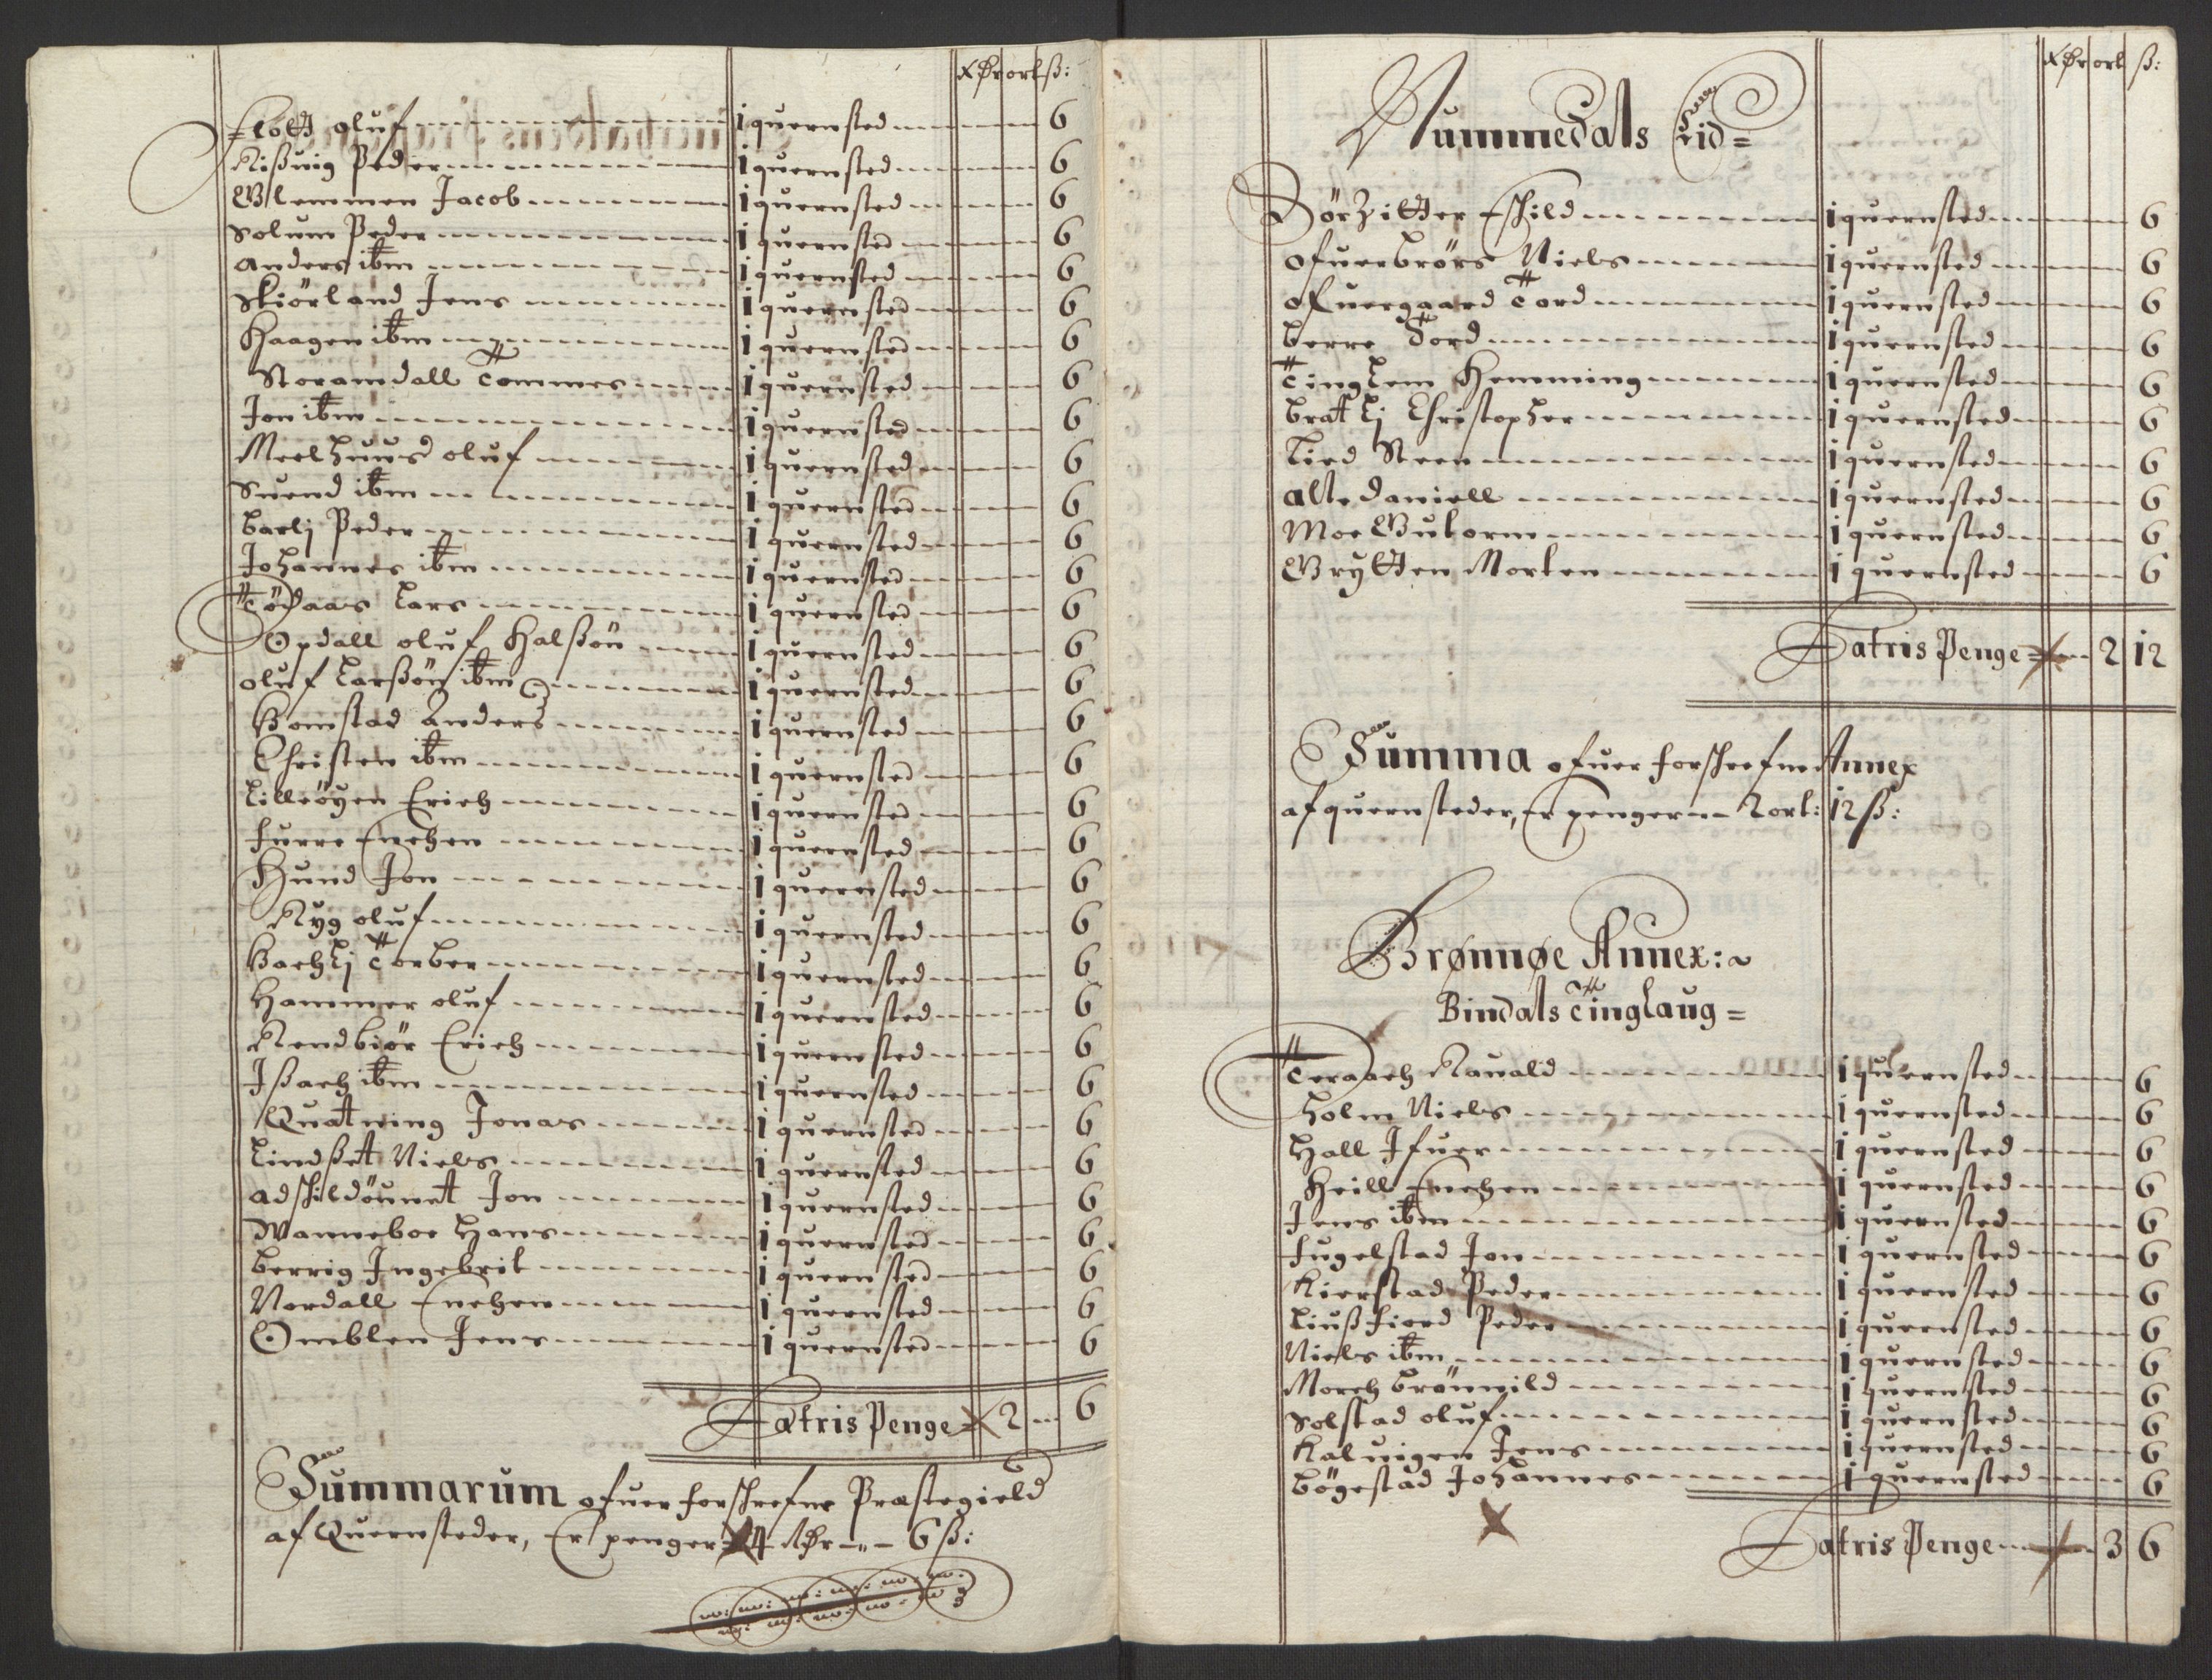 Rdr ort ß:
Floett oluf 1 quernsted 6
Rißuig Peder 1 quernsted 6
Glemmen Jacob 1 quernsted 6
Solum Peder 1 quernsted 6
Anders ibm 1 quernsted 6
Skiörland Jens 1 quernsted 6
Haagen ibm 1 quernsted 6
Storamdall Tommes 1 quernsted 6
Jon ibm 1 quernsted 6
Meelhuus oluf 1 quernsted 6
Suend ibm 1 quernsted 6
Barlj Peder 1 quernsted 6
Johannes ibm 1 quernsted 6
Tödaas Lars 1 quernsted 6
Opdall oluf Halßön 1 quernsted 6
oluf Larßön ibm 1 quernsted 6
Komstad Anders 1 quernsted 6
Christen ibm 1 quernsted 6
Lilleöyen Erich 1 quernsted 6
Furre Enchen 1 quernsted 6
Hund Jon 1 quernsted 6
Ryg oluf 1 quernsted 6
Bachlj Torber 1 quernsted 6
Hammer oluf 1 quernsted 6
Rendbiör Erich 1 quernsted 6
Jßach ibm 1 quernsted 6
Quatning Jonas 1 quernsted 6
Lindßett Niels 1 quernsted 6
Adschildöunet Jon 1 quernsted 6
Wanneboe Hans 1 quernsted 6
Berrig Ingebrit 1 quernsted 6
Nordall Enchen 1 quernsted 6
Omblen Jens 1 quernsted 6
Latris Penge 2 6
Summarum ofuer forschrefne Præstegield
af Quernsteder, Er penger 4 Rdr - „ - 6 ß:
Rdr ort ß:
Nummedals Eid =
Dörzitter Eschild 1 quernsted 6
Ofuerbrörs Niels 1 quernsted 6
Ofuergaard Tord 1 quernsted 6
Berre Tord 1 quernsted 6
Tinglem Hemming 1 quernsted 6
Bratlj Christopher 1 quernsted 6
Lied Steen 1 quernsted 6
Alte daniell 1 quernsted 6
Moe Gutorm 1 quernsted 6
Grytten Morten 1 quernsted 6
Latris Penge 2 12
Summa ofuer forschrefne Annex
af quernsteder, Er penger 2 ort: 12 ß:
Brønnøe Annex: ~
Bindals Tinglaug =
Teraach Rauald 1 quernsted 6
Holm Niels 1 quernsted 6
Hall Ifuer 1 quernsted 6
Heill Enchen 1 quernsted 6
Jens ibm 1 quernsted 6
Fugelstad Jon 1 quernsted 6
Kierstad Peder 1 quernsted 6
Liußfiord Peder 1 quernsted 6
Niels ibm 1 quernsted 6
Morch Brönnild 1 quernsted 6
Solstad oluf 1 quernsted 6
Kaluigen Jens 1 quernsted 6
Bögestad Johannes 1 quernsted 6
Latris Penge 3 6